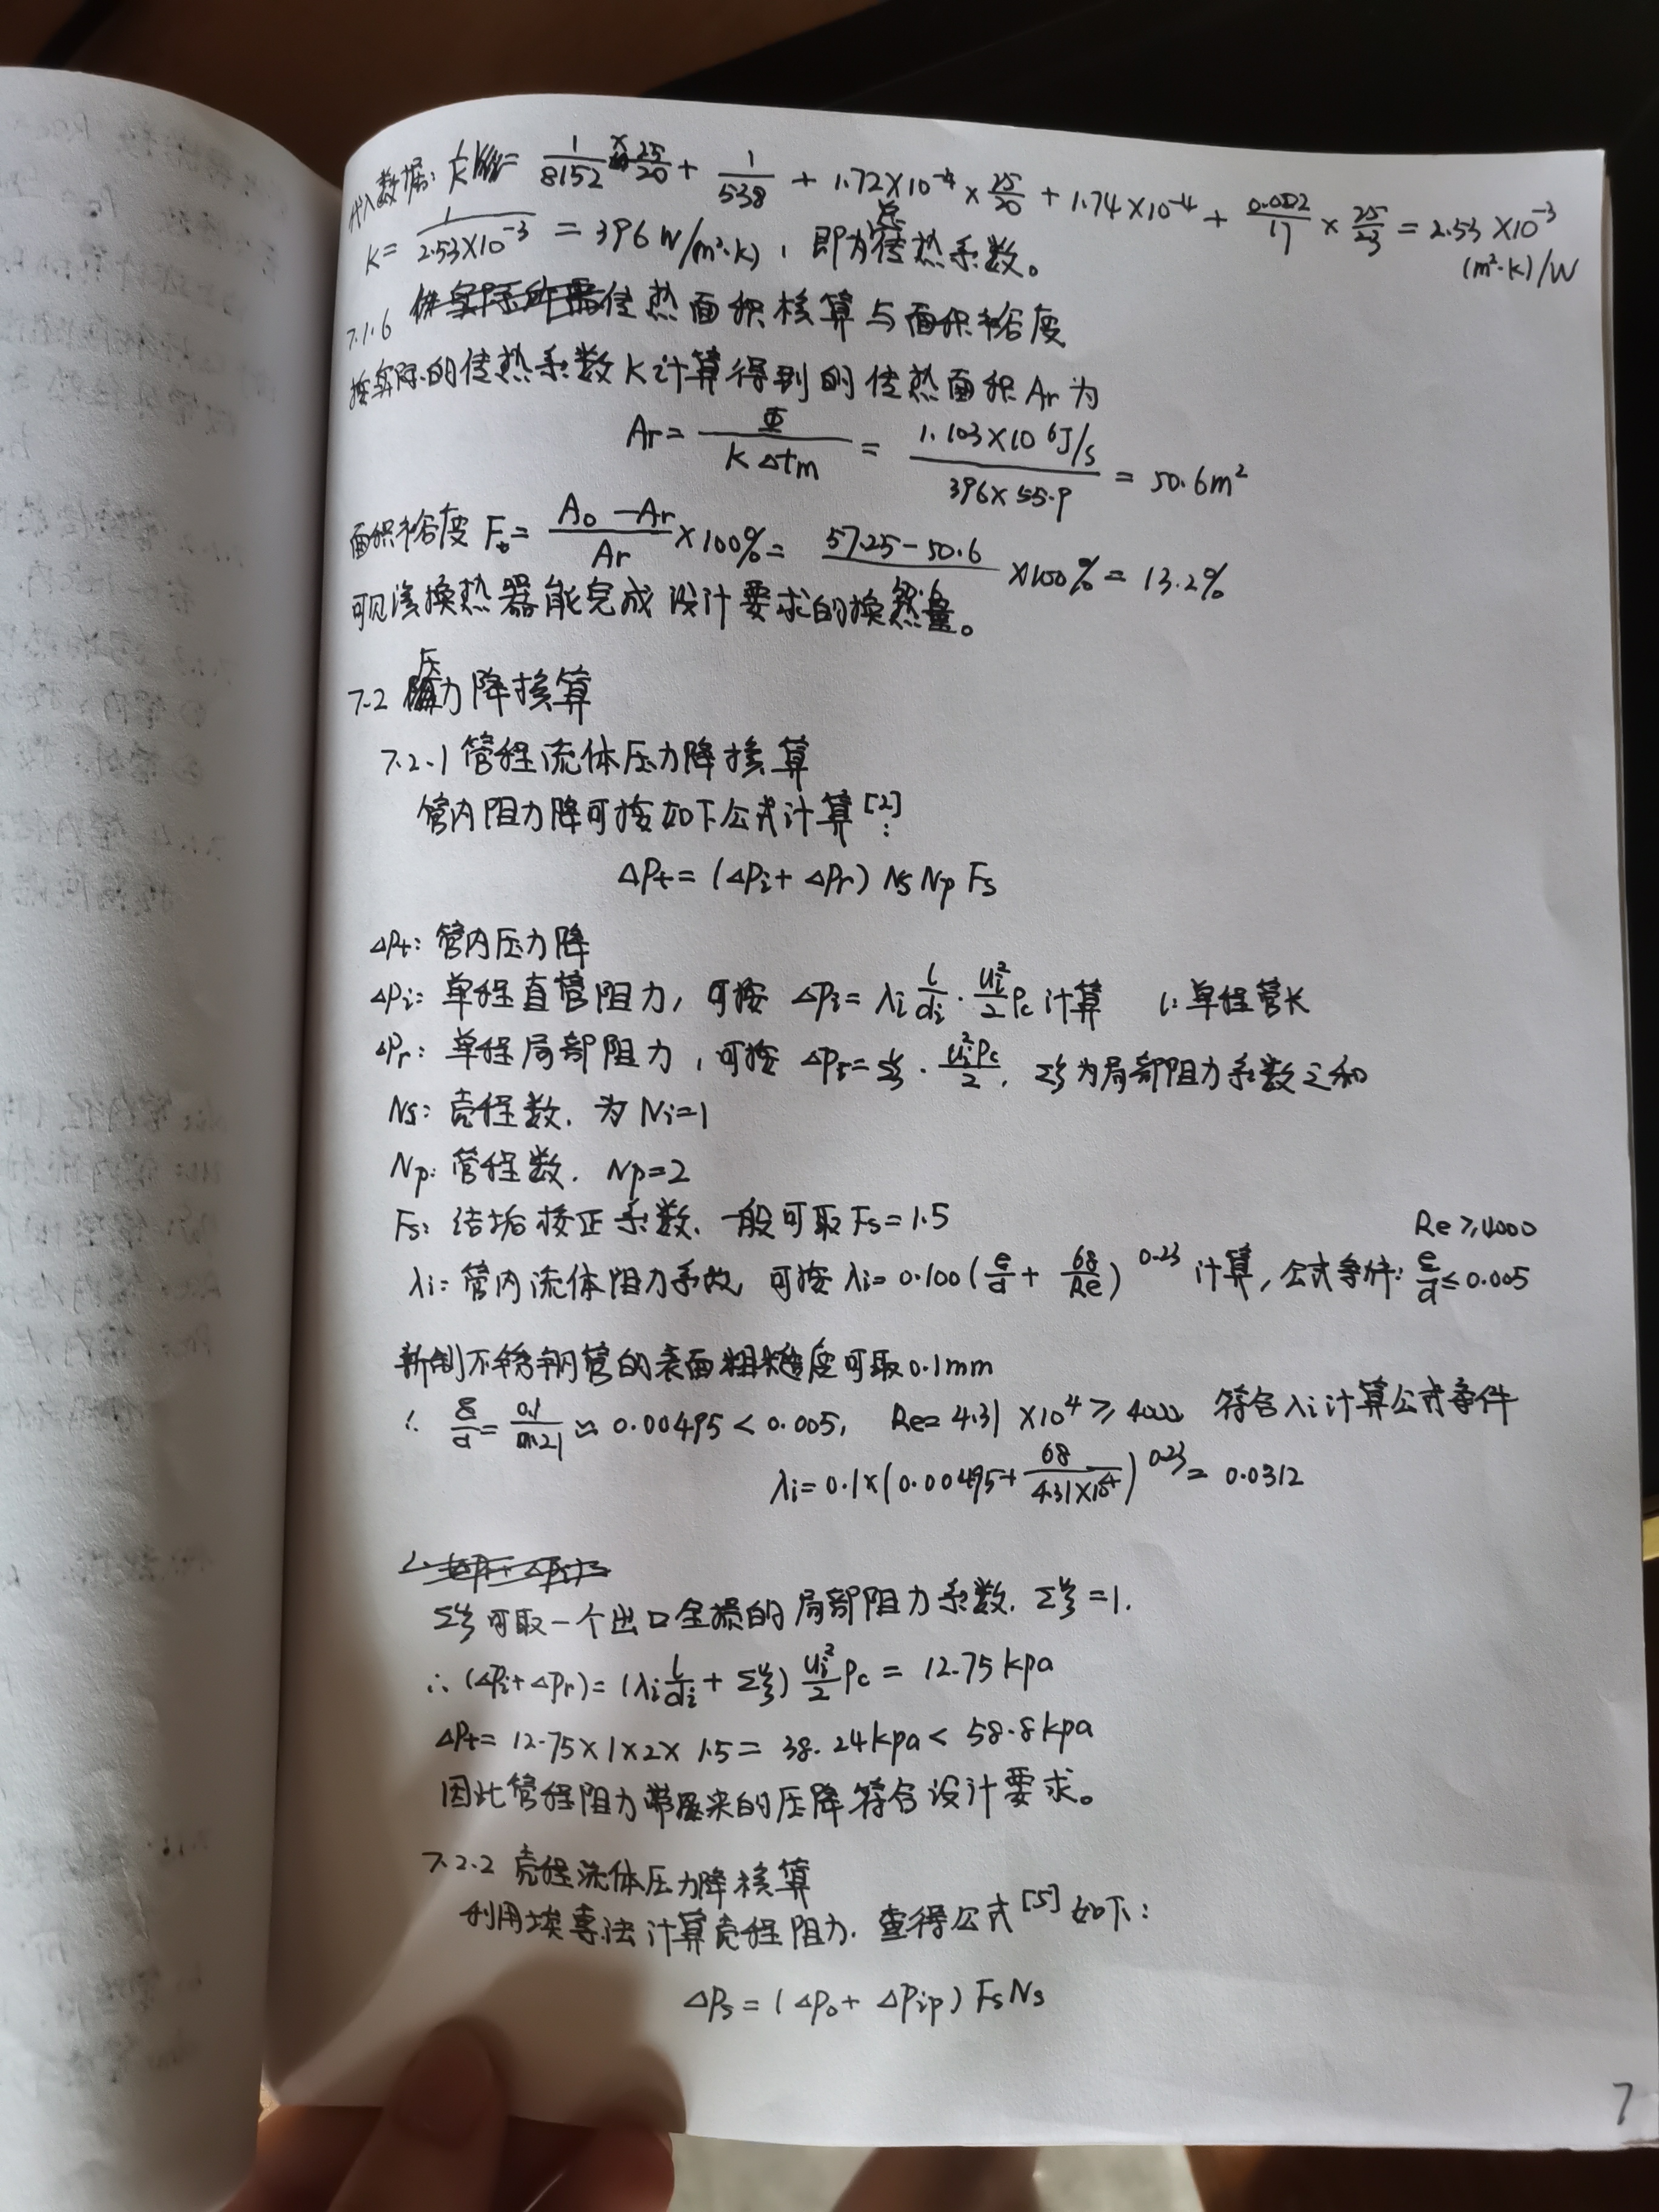 代入数据: 1/K = 1/8152 × 25/20 + 1/538 + 1.72×10⁻⁴ × 25/20 + 1.74×10⁻⁴ + 0.002/17 × 25/23 = 2.53×10⁻³ (m²·K)/W
K = 1/(2.53×10⁻³) = 396 W/(m²·K), 即为总传热系数。
7.1.6 传热面积核算与面积裕度
按实际的传热系数K计算得到的传热面积Ar为
Ar = Φ/(KΔtm) = 1.103×10⁶J/s / (396×55.9) = 50.6m²
面积裕度 F = (A₀-Ar)/Ar ×100% = 57.25-50.6 ×100% = 13.2%
可见该换热器能完成设计要求的换热量。
7.2 压力降核算
7.2.1 管程流体压力降核算
管内阻力降可按如下公式计算[2]:
ΔPt = (ΔPi + ΔPr) Ns Np Fs
ΔPt: 管内压力降
ΔPi: 单程直管阻力, 可按 ΔPi = λi l/di · ui²/2 ρc 计算 l: 单程管长
ΔPr: 单程局部阻力, 可按 ΔPr = Σξ · ui²ρc/2, Σξ为局部阻力系数之和
Ns: 壳程数. 为Ni=1
Np: 管程数. Np=2
Fs: 结垢校正系数. 一般可取Fs=1.5
λi: 管内流体阻力系数, 可按 λi = 0.100(ε/d + 68/Re)^0.23 计算, 公式条件: Re≥4000 ε/d ≤0.005
新制不锈钢管的表面粗糙度可取0.1mm
∴ ε/d = 0.1/ ≈ 0.00495 < 0.005, Re = 4.31×10⁴ ≥ 4000 符合λi计算公式条件
λi = 0.1×(0.00495 + 68/(4.31×10⁴))^0.23 = 0.0312
Σξ可取一个出口全损的局部阻力系数. Σξ=1.
∴ (ΔPi+ΔPr) = (λi l/di + Σξ) ui²/2 ρc = 12.75 kpa
ΔPt = 12.75×1×2×1.5 = 38.24kpa < 58.8kpa
因此管程阻力带来的压降符合设计要求。
7.2.2 壳程流体压力降核算
利用埃索法计算壳程阻力. 查得公式[5]如下:
ΔPs = (ΔP₀ + ΔPip) Fs Ns
7